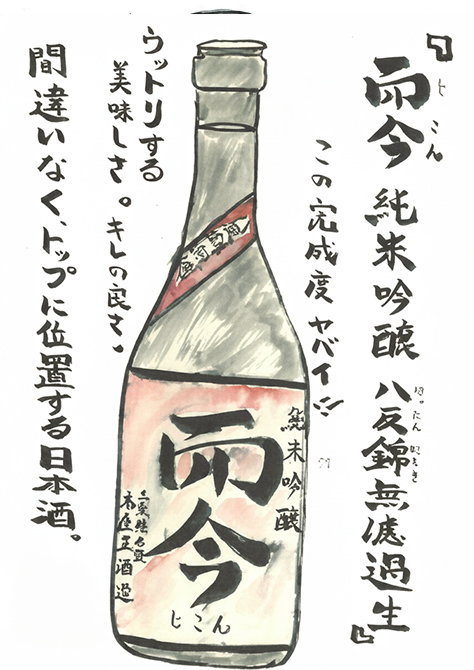 『而今 純米吟醸 八反錦無濾過生』
じこん
はったんにしき
この完成度 ヤバイ!!
ウットリする
美味しさ。キレの良さ。
間違いなく、トップに位置する日本酒。
純米吟醸
而今
じこん